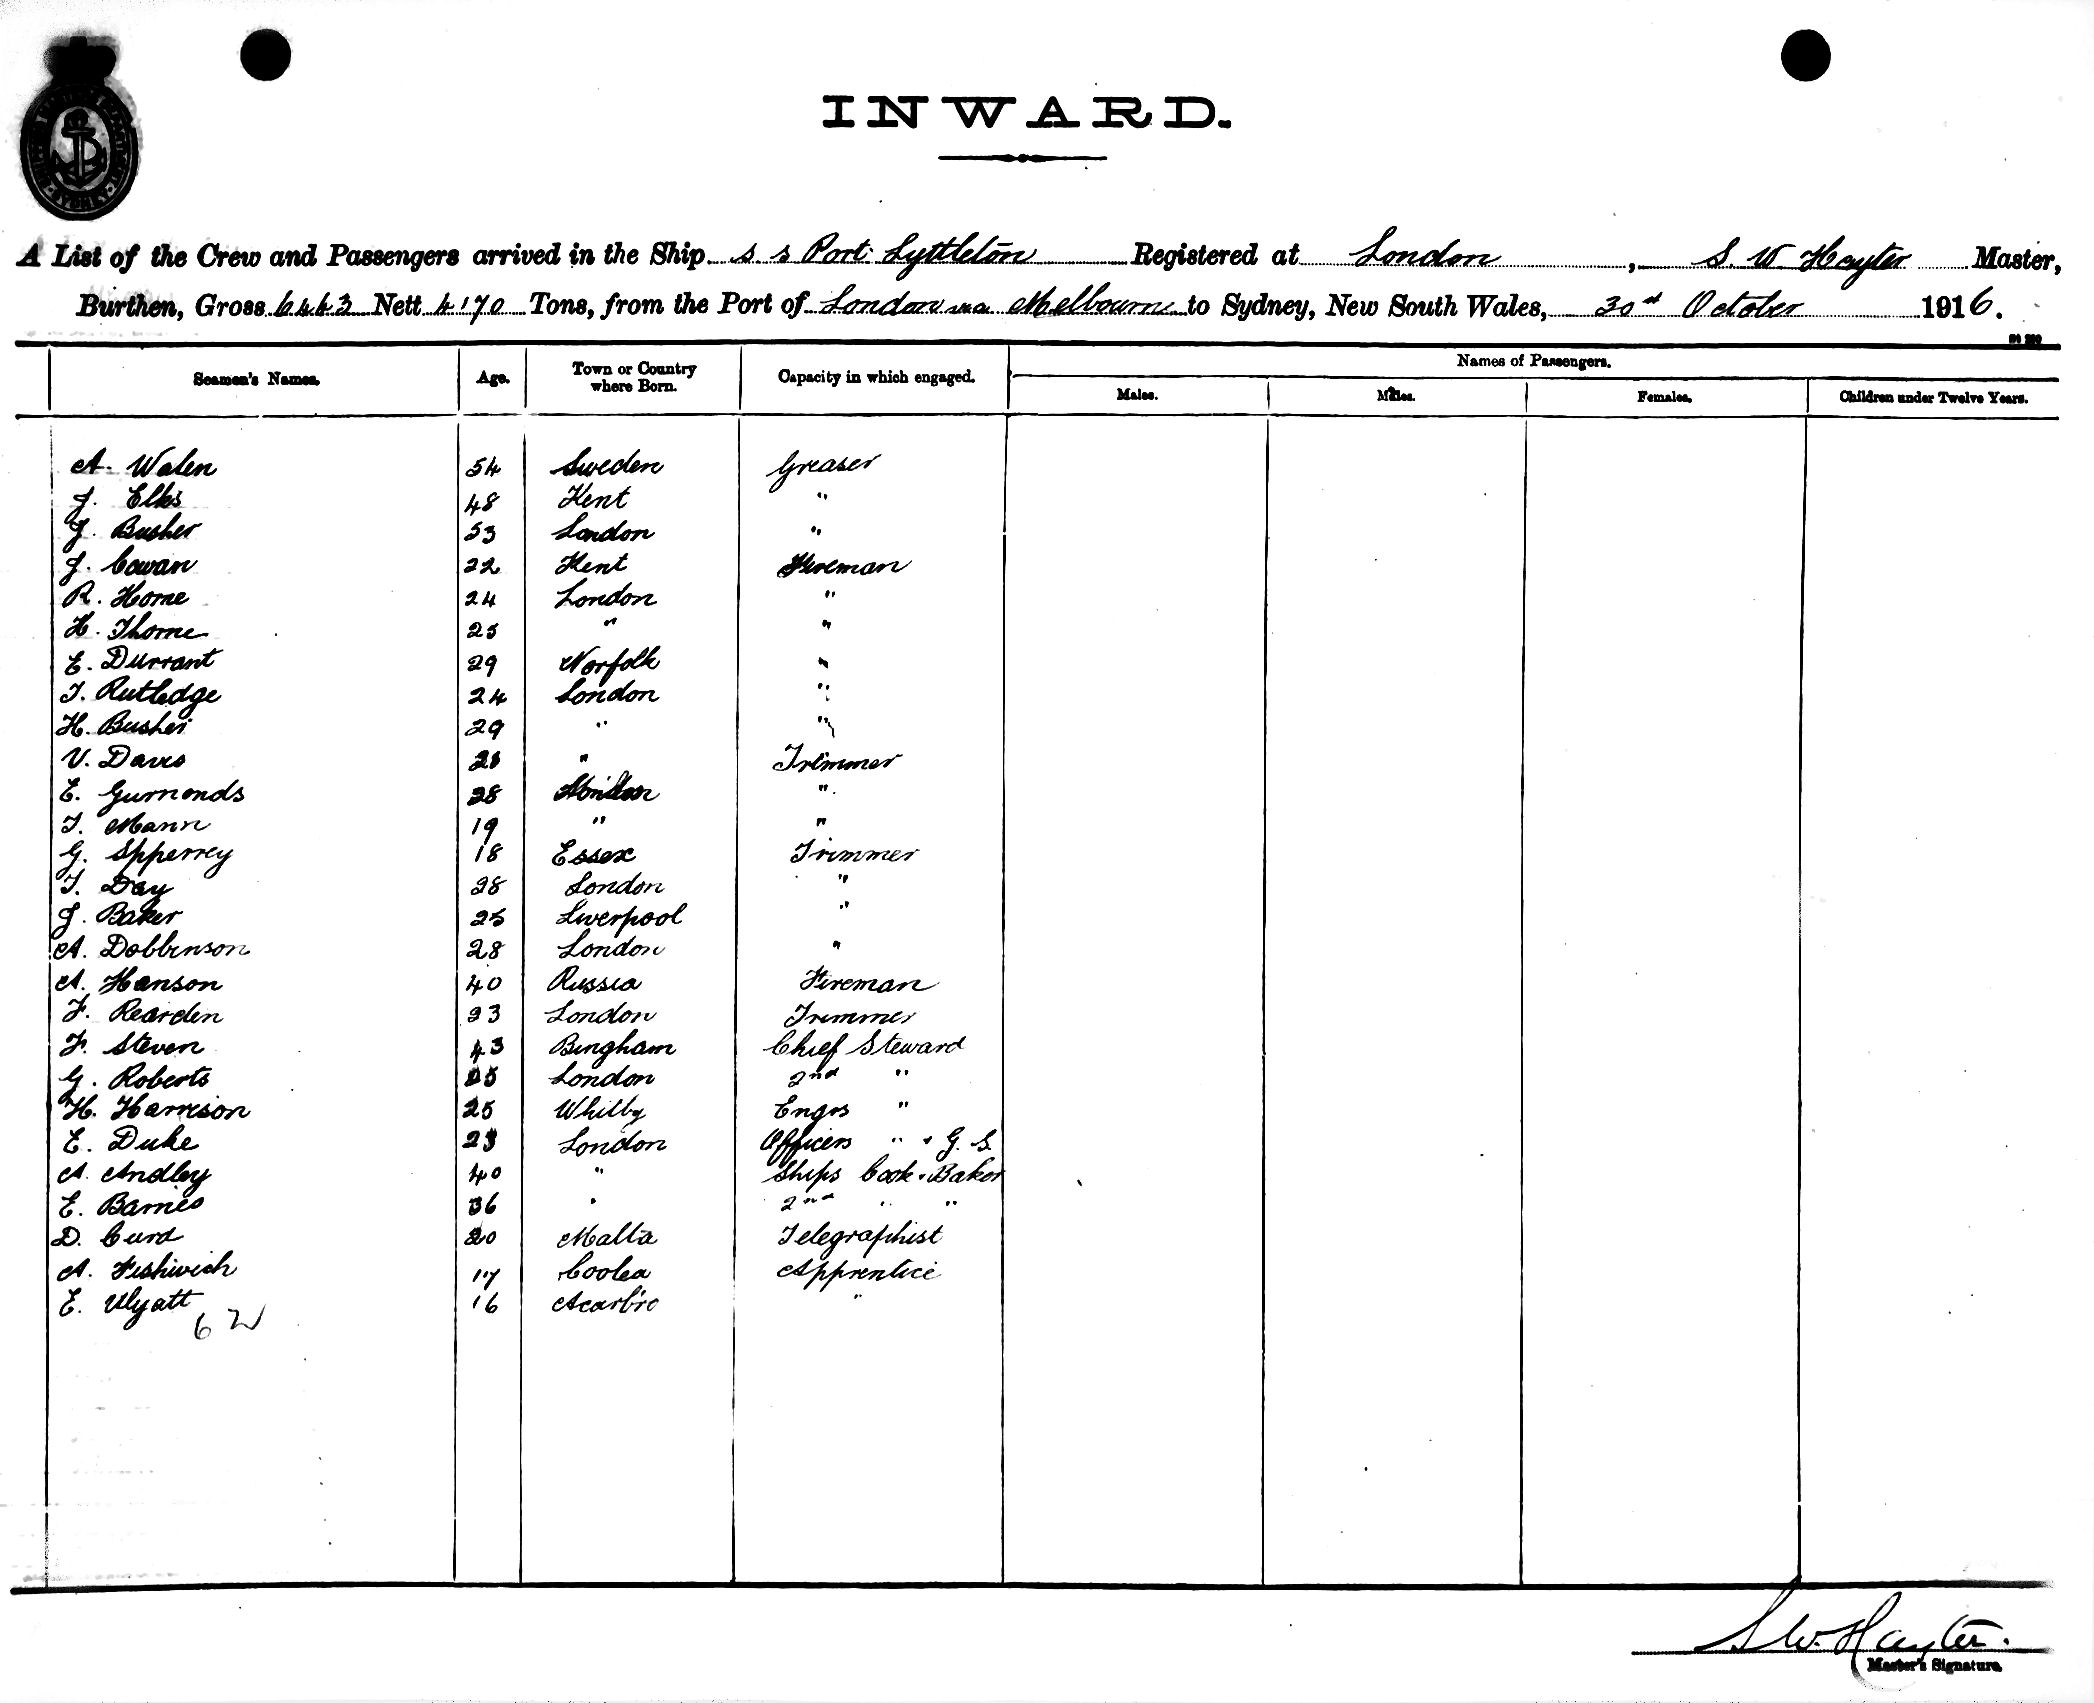 INWARD.
A List of the Crew and Passengers arrived in the Ship s s Port Lyttleton Registered at London, S. W. Hayter Master,
Burthen, Gross 6443 Nett 4170 Tons, from the Port of London via Melbourne to Sydney, New South Wales, 30 October 1916.
Seamen's Names. Age. Town or Country where Born. Capacity in which engaged. Names of Passengers.
Males. Males. Females. Children under Twelve Years.
A. Walen 54 Sweden Greaser
J. Elks 48 Kent "
J. Busher 53 London "
J. Cowan 22 Kent Fireman
R. Horne 24 London "
H. Thorne 25 " "
E. Durrant 29 Norfolk "
T. Rutledge 24 London "
H. Busher 29 " "
V. Davis " Trimmer
E. Gurnonds 28 London "
T. Mann 19 " "
G. Spperrey 18 Essex Trimmer
T. Day 28 London "
J. Baker 25 Liverpool "
A. Dobbinson 28 London "
A. Hanson 40 Russia Fireman
F. Rearden 23 London Trimmer
F. Steven 43 Bingham Chief Steward
G. Roberts London 2nd "
H. Harrison 25 Whitby Engrs "
E. Duke London Officers " + G. S.
A. Andley 40 " Ships Cook + Baker
E. Barnes 36 " 2nd " "
D. Curd 20 Malta Telegraphist
A. Fishwich 17 Apprentice
E. Wyatt 16 "
62
S W. Hayter.
Master's Signature.